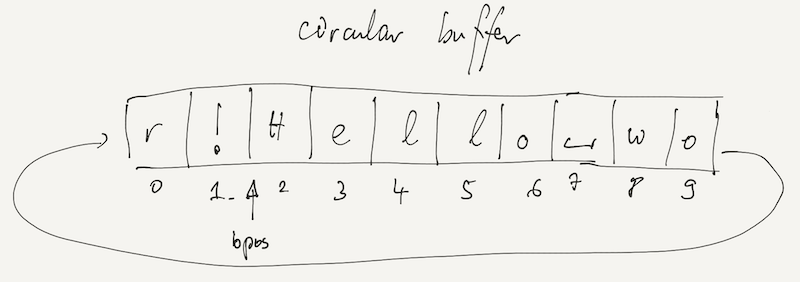 circular buffer
r ! H e l l o ␣ w o
0 1 2 3 4 5 6 7 8 9
bpos